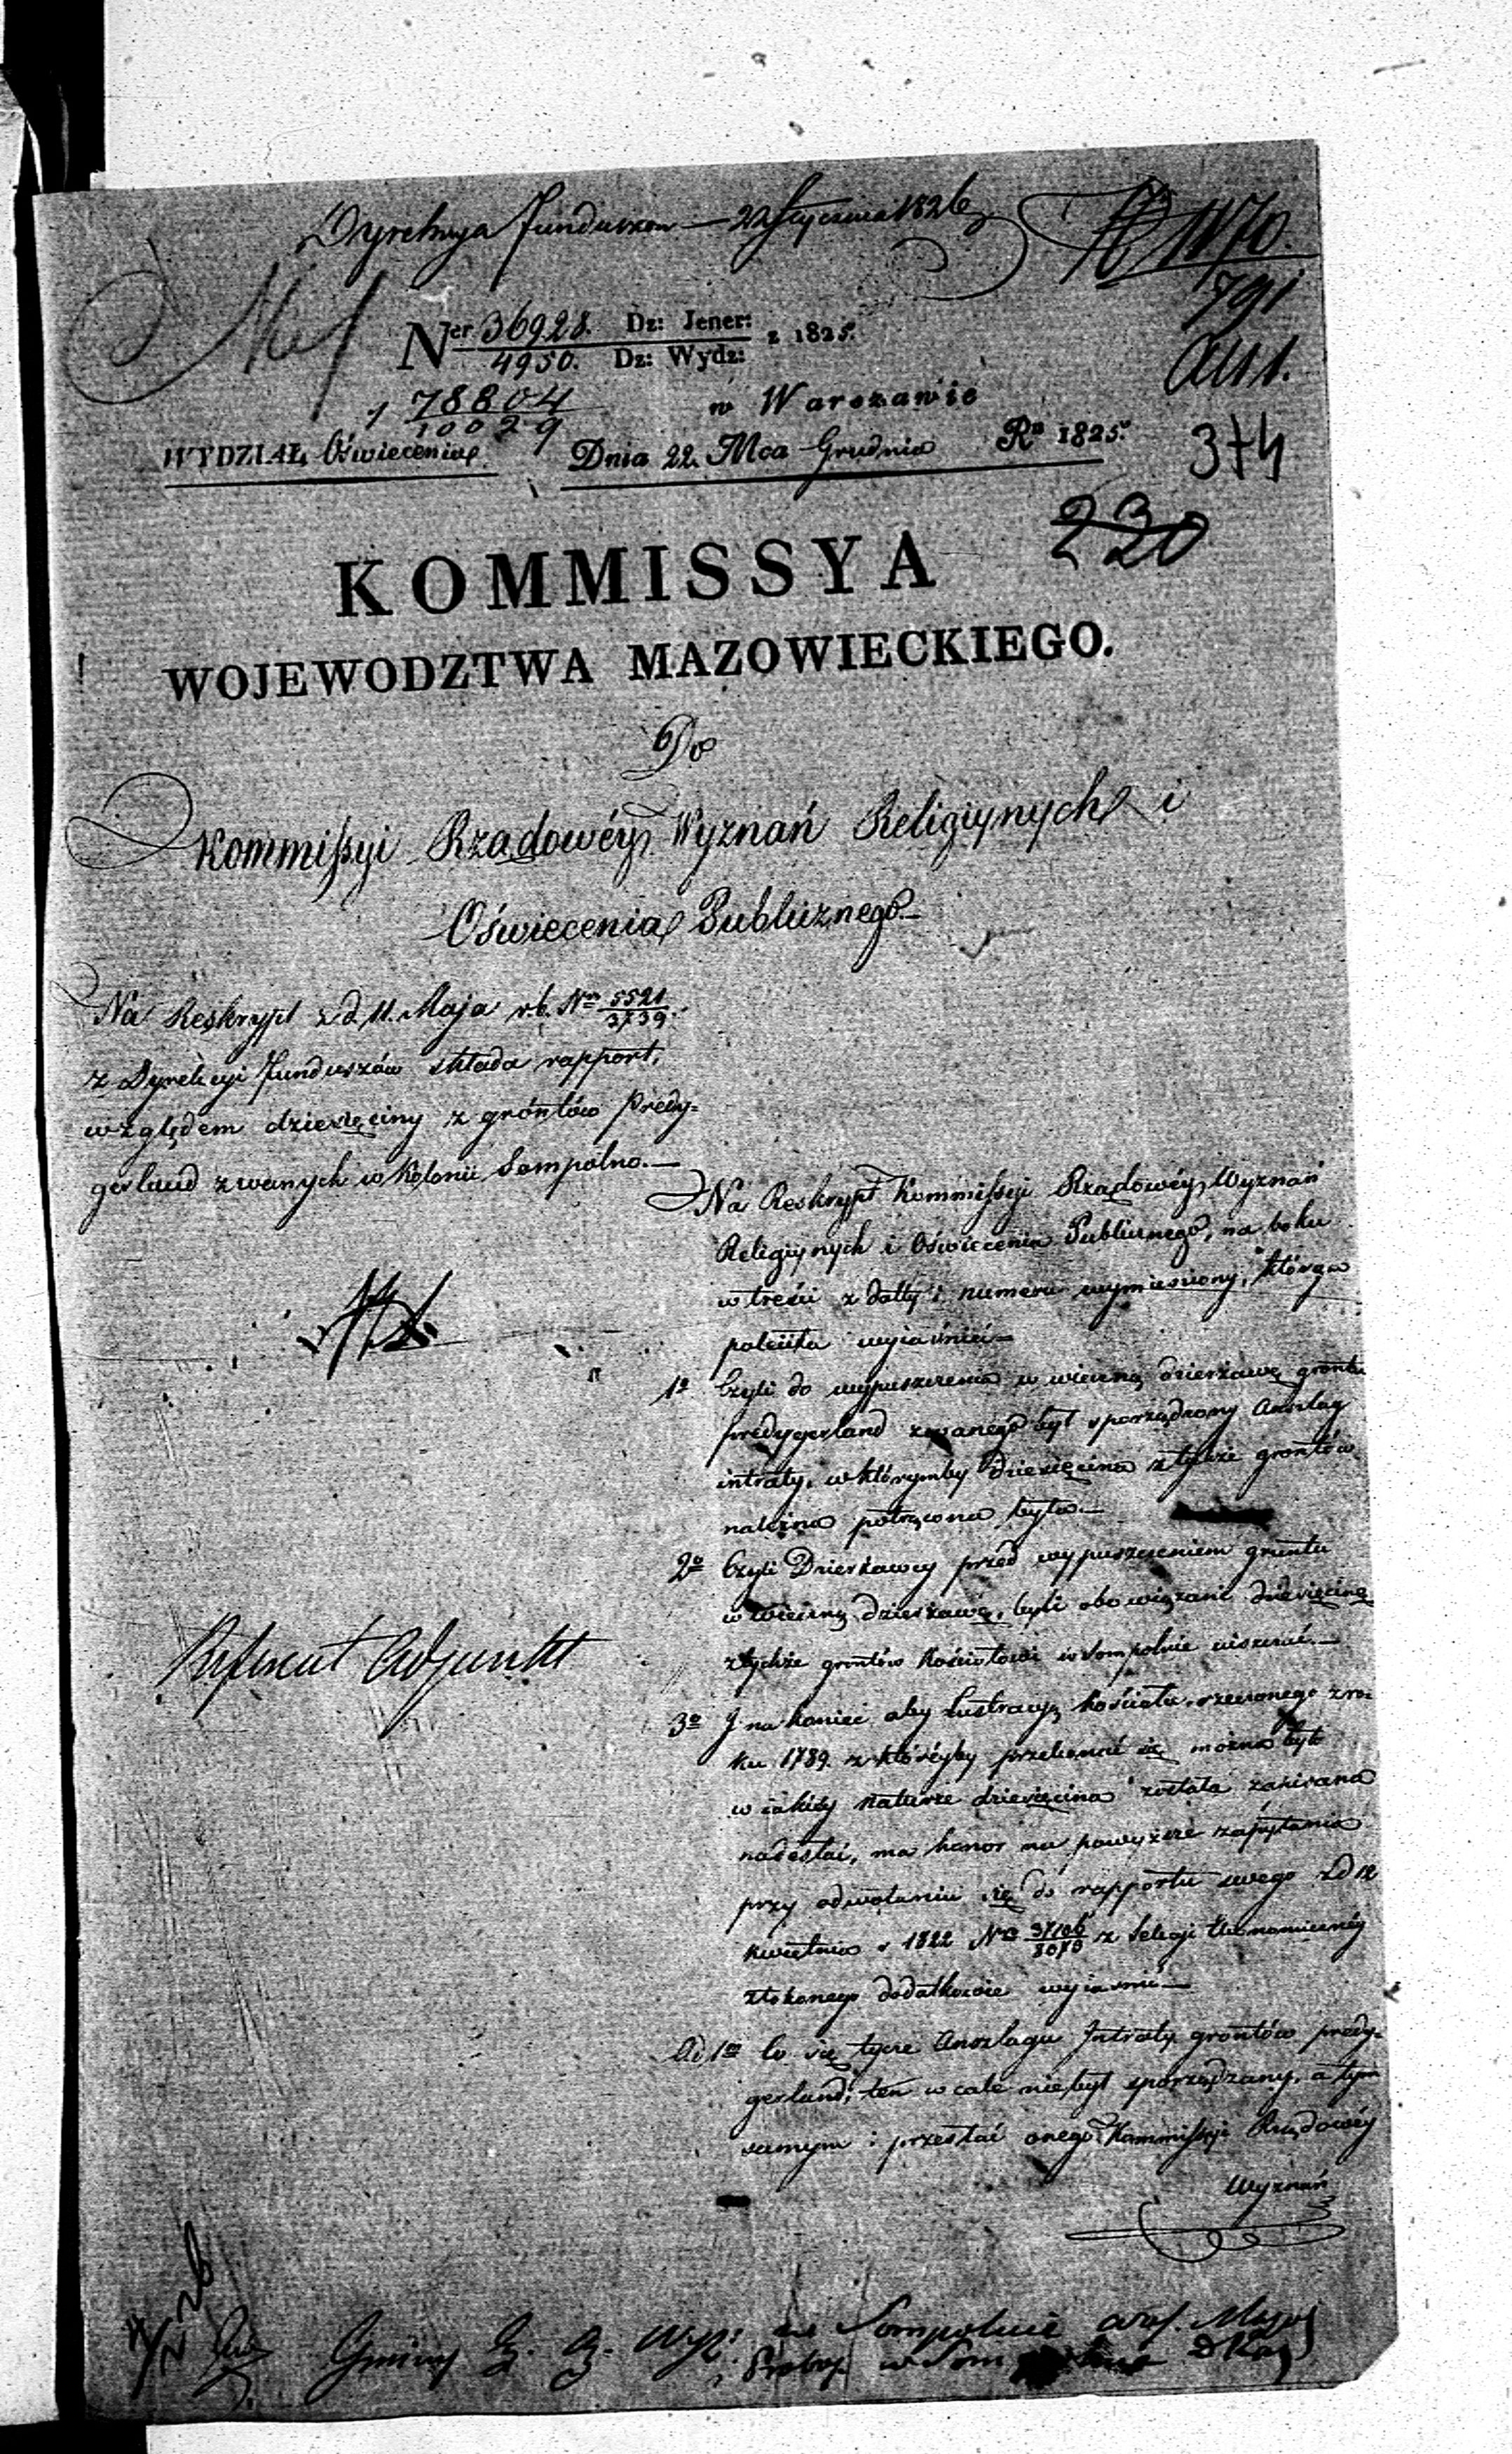 Dyrekcya Funduszow — 22 Stycznia 1826
1470.
791
Ner 36928. Dz: Jener: z 1825.
4950. Dz: Wydz:
78804
10029
w Warszawie
WYDZIAŁ Oświecenia
Dnia 22. Mca Grudnia Ru 1825.
374
220
KOMMISSYA
WOJEWODZTWA MAZOWIECKIEGO.
Do
Kommissyi Rządowéy Wyznań Religiynych i
Oświecenia Publicznego.—
Na Reskrypt z d. 11. Maja r.b. Nro 5521/3739.
z Dyrekcyi Funduszów składa rapport,
względem dziesięciny z gróntów Predy-
gerland zwanych w Kolonii Sompolno.—
Na Reskrypt Kommissyi Rządowéy Wyznań
Religiynych i Oświecenia Publicznego, na boku
w treści z datty i numeru wymieniony, którą
poleciła wyiaśnić—
1o Czyli do wypuszczenia w wieczną dzierżawę grontu
predygerland zwanego był sporządzony Anszlag
intraty, w którymby dziesięcina z tychże grontów
należna potrącona była.—
2o Czyli Dzierżawcy przed wypuszczeniem gruntu
w wieczną dzierżawę, byli obowiązani dziesięcinę
z tychże grontów kościołowi w Sompolnie uiszczać.—
3o J na koniec aby Lustracyą kościoła rzeczonego z ro-
ku 1789. z któréyby przekonać się można było
w jakiéy naturze dziesięcina została zapisana
nadesłać, ma honor na powyższe zapytania
przy odwołaniu się do rapportu swego z d 12
kwietnia r 1822 Nro 37106/8070 z Sekcyi Ekonomicznéy
złożonego dodatkowie wyiaśnić—
Ad 1m Co się tycze Anszlagu Intraty gróntów predy-
gerland, ten wcale nie był sporządzany, a tym
samym i przesłać onego Kommissyi Rządowéy
Wyznań
Referent Adjunkt
Gminy E. A. Wyz: w Sompolnie Woj. Mazow
Probosz. w Som